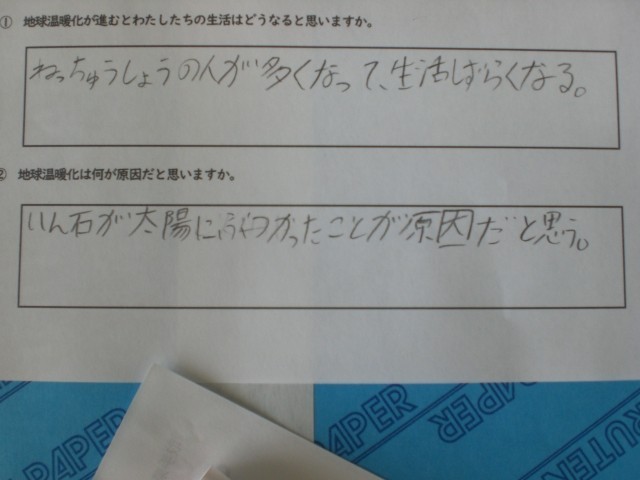 ① 地球温暖化が進むとわたしたちの生活はどうなると思いますか。
ねっちゅうしょうの人が多くなって、生活しずらくなる。
② 地球温暖化は何が原因だと思いますか。
いん石が太陽にぶつかったことが原因だと思う。
PAPER
PAPER
RUTEN